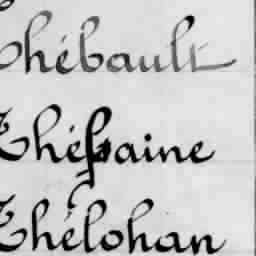 Thébault
Théssaine
Thélohan